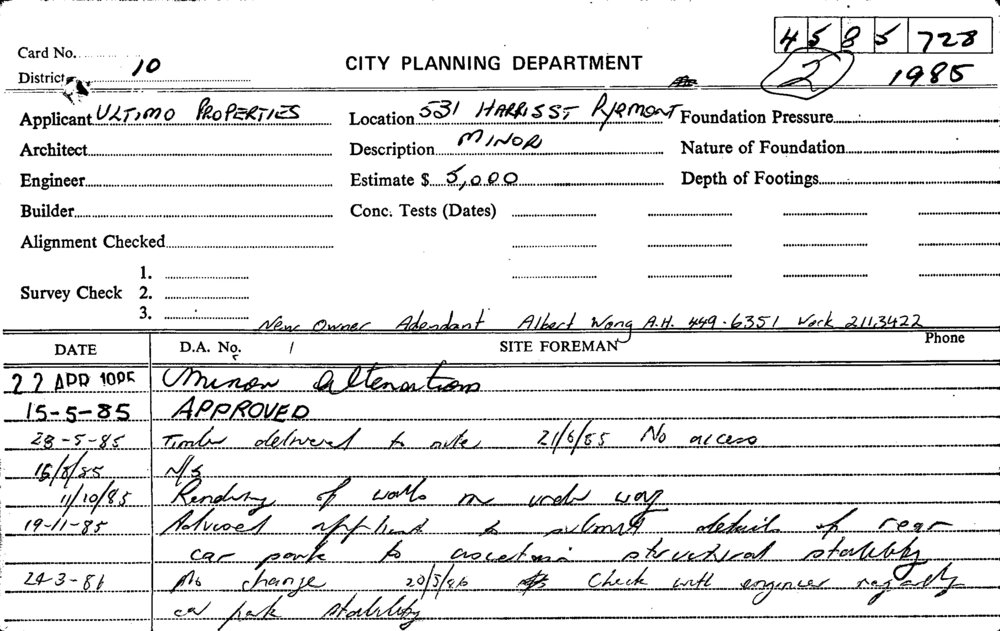 4 5 8 5 728
Card No.
District 10
CITY PLANNING DEPARTMENT
2
1985
Applicant ULTIMO PROPERTIES
Location 531 HARRIS ST PYRMONT
Foundation Pressure
Architect
Description MINOR
Nature of Foundation
Engineer
Estimate $ 5,000
Depth of Footings
Builder
Conc. Tests (Dates)
Alignment Checked
1.
Survey Check 2.
3.
New Owner Adendant Albert Wong A.H. 449.6351 Work 211.3422
DATE D.A. No. / SITE FOREMAN Phone
22 APR 1985 Minor alterations
15-5-85 APPROVED
28-5-85 Timber delivered to site 21/6/85 No access
/8/85 N/S
11/10/85 Rendering of walls now under way
19-11-85 Advised applicant to submit details of rear
car park to ascertain structural stability
24-3-86 No change 20/5/86 Check with engineer regarding
car park stability